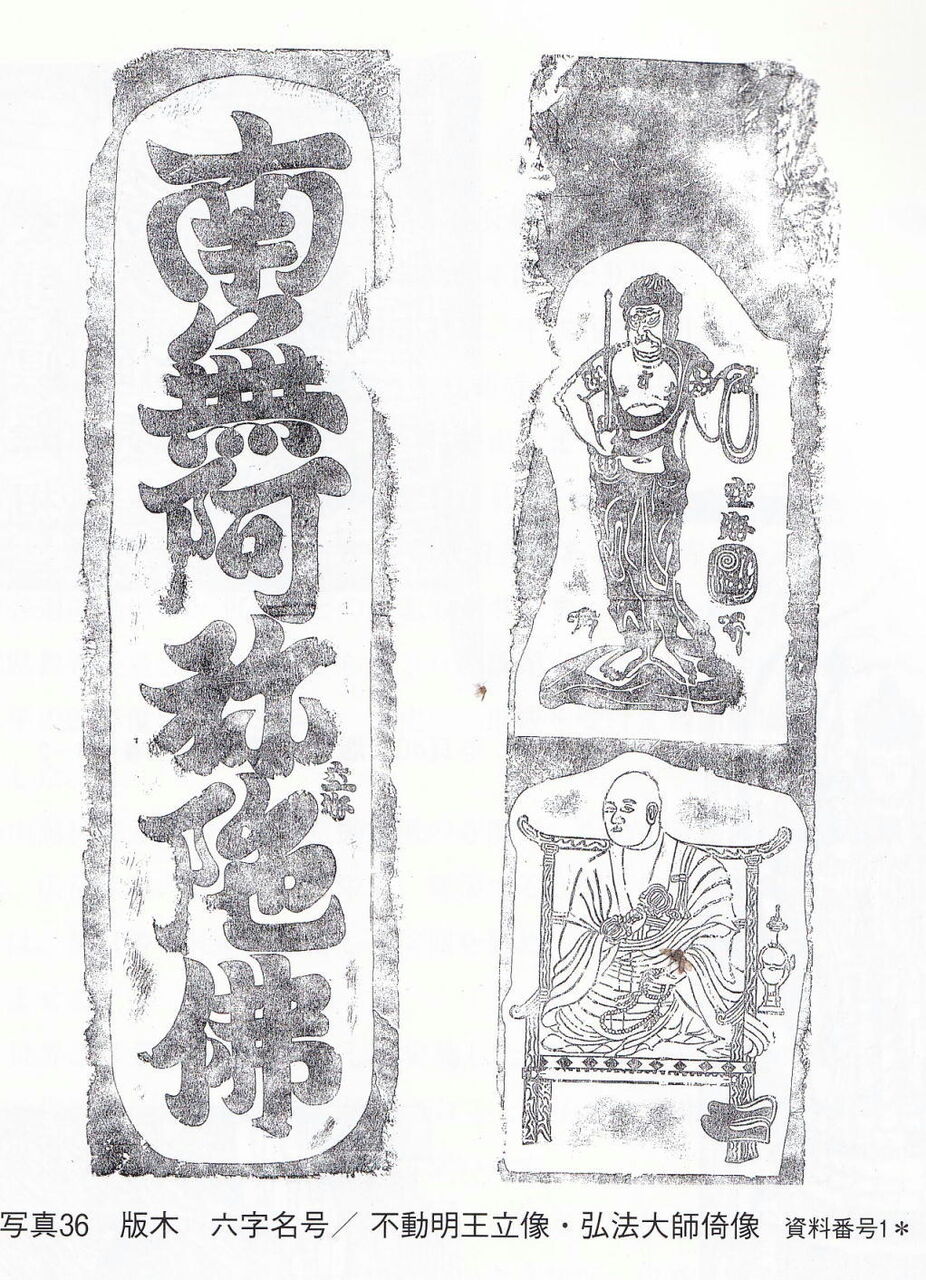 南無阿弥陀佛
空海
写真36 版木 六字名号／不動明王立像・弘法大師倚像 資料番号1＊